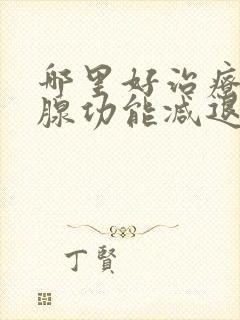 哪里好治疗
腺功能减退
丁賢